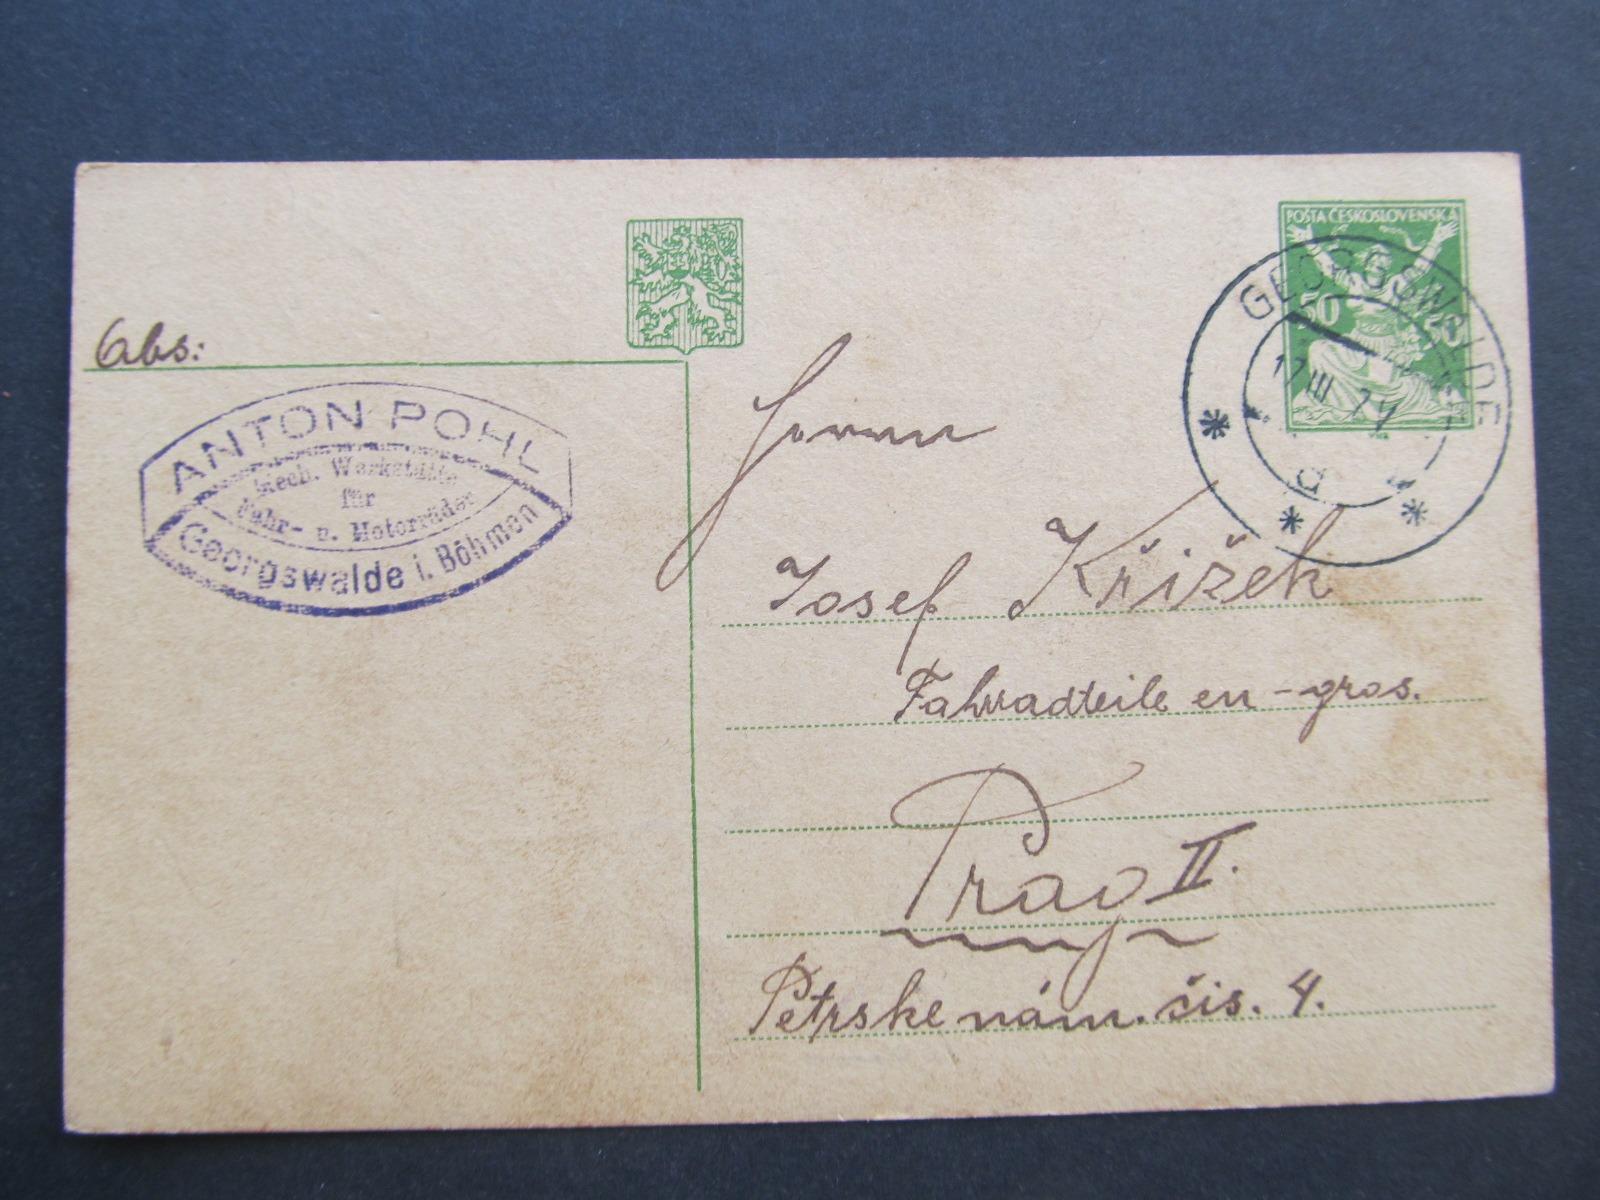 POŠTA ČESKOSLOVENSKÁ
50 50
GEORGSWALDE
17 III
Abs:
ANTON POHL
Mech. Werkstätte
für
Fahr- u. Motorräder
Georgswalde i. Böhmen
Herrn
Josef Křižek
Fahrradteile en-gros.
Prag II.
Petrske nám. čis. 4.